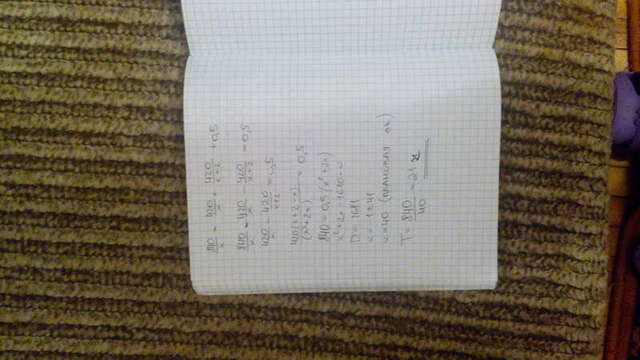 840/x = 420/x + 420/(x+2) + 0,5
840/x - 420/x - 420/(x+2) = 0,5
420/x - 420/(x+2) = 0,5
420(x+2-x)/(x²+2x) = 0,5
840 = 0,5(x²+2x)
x²+2x-1680=0
D = 1681
x=-1±41
x=40 (плановая ск)
T = 840/40 = 21 ч